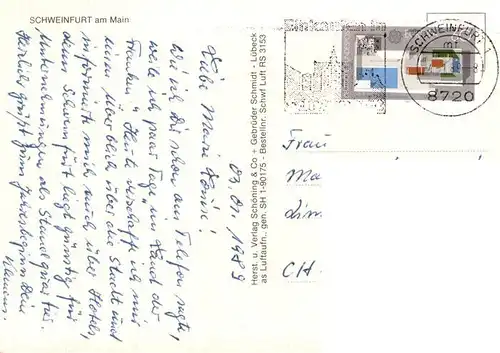 SCHWEINFURT am Main
03.01.1989
Liebe Marie Louise!
wie ich Dir schon am Telefon sagte,
weile ich paar Tage "im Land der
Franken". Heute verschaffe ich mir
einen Überblick über die Stadt und
informierte mich auch über Hotels,
denn Schweinfurt liegt günstig für
Unternehmungen als Standquartier.
Herzlich grüßt zum Jahresbeginn Dein
Herst. u. Verlag Schöning & Co + Gebrüder Schmidt - Lübeck
as Luftaufn. gen. SH 1-90175 - Bestellnr. Schwf Luft RS 3153
Einkaufen in
SCHWEINFURT 1
8720
Frau
Ma
CH-